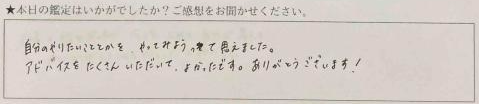 ★本日の鑑定はいかがでしたか？ご感想をお聞かせください。
自分のやりたいこととかを、やってみようって思えました。
アドバイスをたくさんいただいて、よかったです。ありがとうございます！